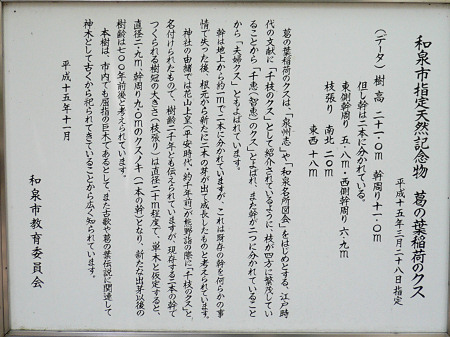 和泉市指定天然記念物 葛の葉稲荷のクス
平成十五年三月二十八日指定
(データ) 樹高 二十一・〇m 幹周り十一・〇m
但し幹は二本に分かれている。
東側幹周り 五・八m・西側幹周り 六・九m
枝張り 南北 二〇m
東西 十八m
葛の葉稲荷のクスは、「泉州志」や「和泉名所図会」をはじめとする、江戸時
代の文献に「千枝のクス」として紹介されているように、枝が四方に繁茂してい
ることから「千恵(智恵)のクス」とよばれ、また幹が二つに分かれていること
から「夫婦のクス」ともよばれています。
幹は地上から約一mで二本に分かれていますが、これは既存の幹を何らかの事
情で失った後、根元から新たに二本の芽が出て成長したものと考えられています。
神社の由緒では花山上皇(平安時代、約千年前)が熊野詣の際に「千枝のクス」と
名付けられたもので、樹齢二千年とも伝えられていますが、現存する二本の幹で
つくられる樹冠の大きさ(枝張り)は直径二十m程度で、単木と仮定すると、
直径二・九m、幹周り九・〇mのクスノキ(一本の幹)となり、新たな出芽以後の
樹齢は七〇〇年前後と考えられています。
本樹は、市内でも屈指の巨木であるとして、また古歌や葛の葉伝説に関連して
神木として古くから祀られてきていることから広く知られています。
平成十五年十一月
和泉市教育委員会